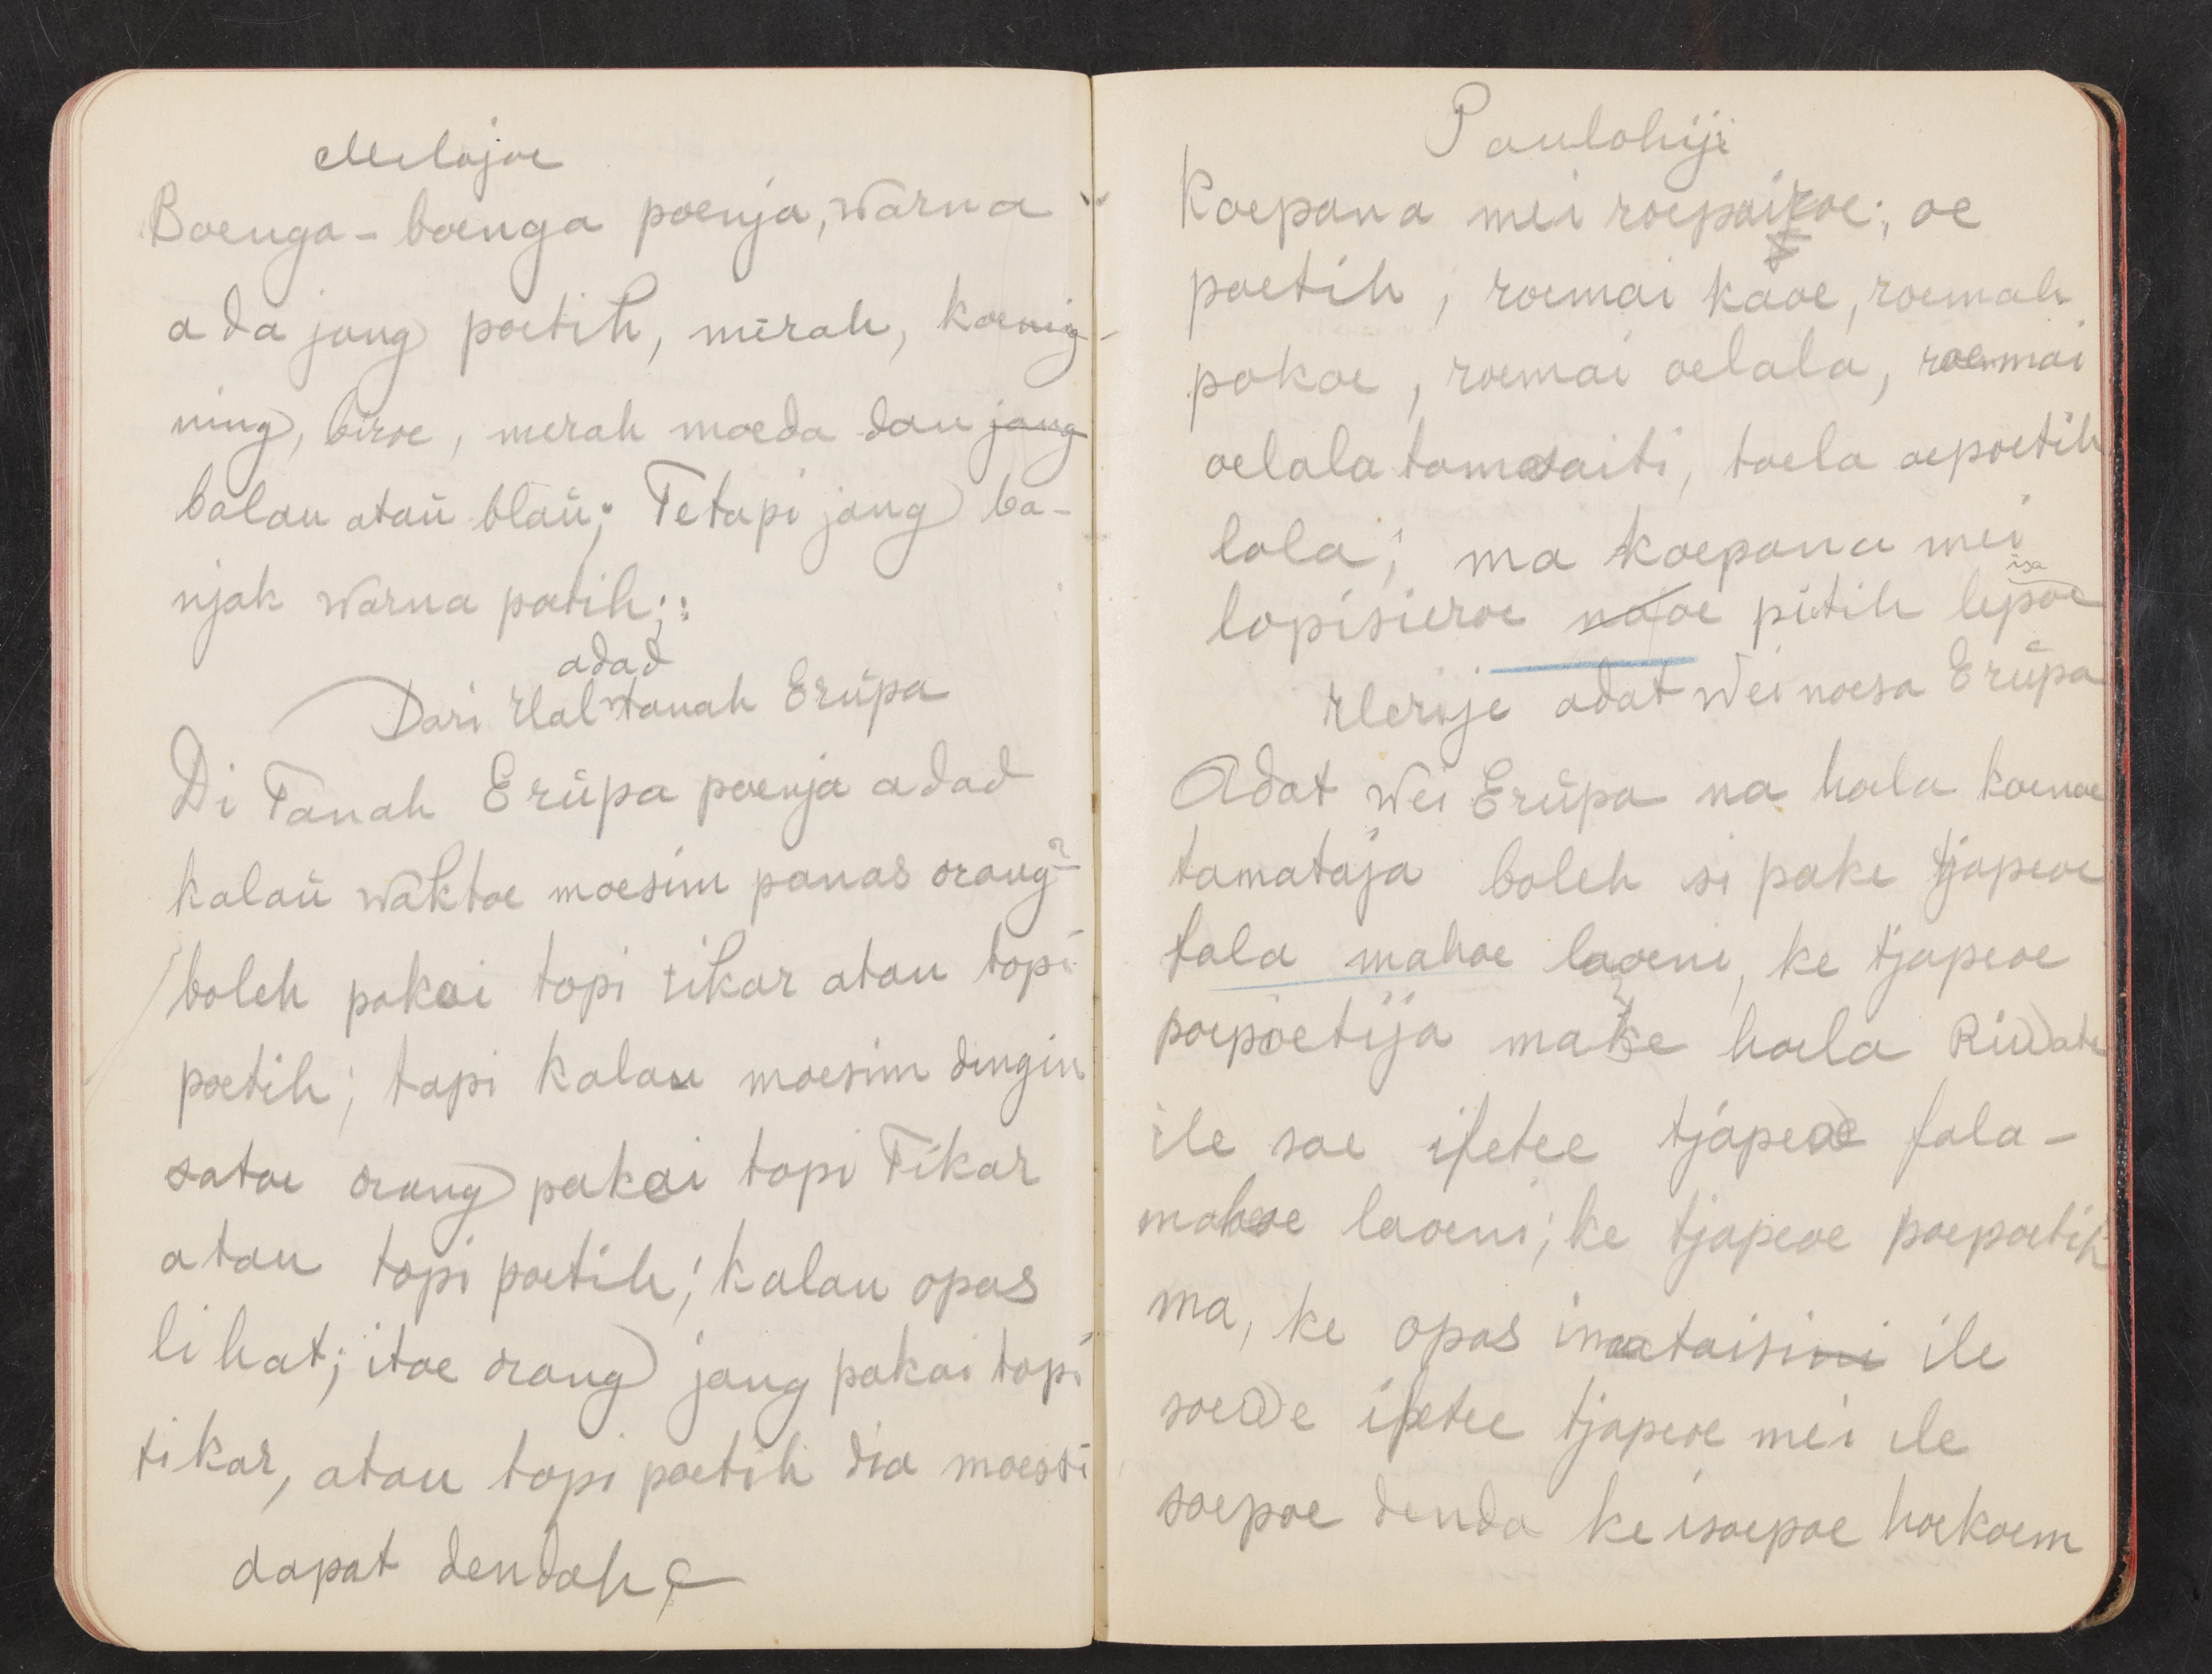 Melajoe
Boenga-boenga poenja, warna
ada jang poetih, merah, koenig-
ning, biroe, merah moeda dan jang
balau atau blaü; Tetapi jang ba-
njak warna potih;:
adad
Dari Hal tanah Erüpa
Di Tanah Erüpa poenja adad
kalaü waktoe moesim panas orang²
boleh pakai topi tikar atau topi
poetih; tapi kalau moesim dingin
satoe orang pakai topi Tikar
atau topi poetih; kalau opas
lihat; itoe orang jang pakai topi
tikar, atau topi poetih dia moesti
dapat dendah
Paulohiji
Koepana mei roepairoe; oe
poetih, roemai kaoe, roemah
pokoe, roemai oelala, roemai
oelala tamasaiti, toela oepoetih
lala; ma koepana mei
isa
lopisieroe naoe pütih lepoe
Herije adat wei noesa Erüpa
Adat wei Erüpa na hoela koenoe
tamataja boleh si pake tjapeoe
tala mahoe laoeni, ke tjapeoe
poepoetija make hoela Riwate
ile soe ifetee tjapeoe fala-
mahoe laoeni; ke tjapeoe poepoetih
ma, ke opas imataisini ile
soewe ifetee tjapeoe mei ile
soepoe denda ke isoepoe hoekoem